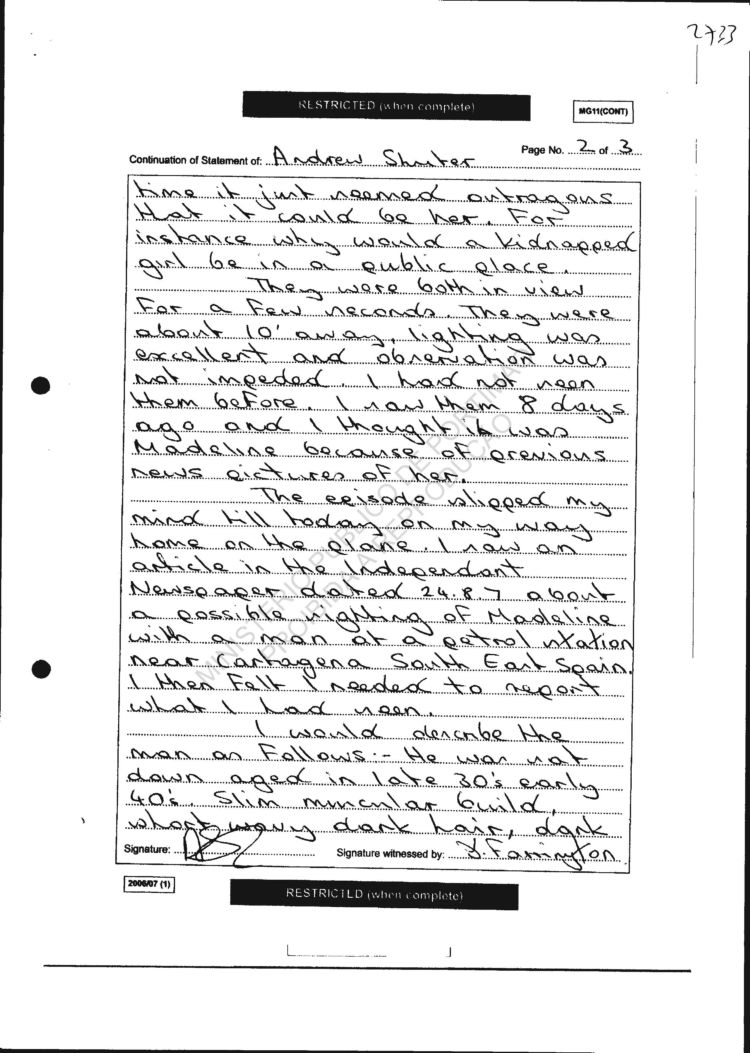 2733
RESTRICTED (when complete)
MG11(CONT)
Page No. 2 of 3
Continuation of Statement of: Andrew Shuter
time it just seemed outragous
that it could be her. For
instance why would a kidnapped
girl be in a public place.
They were both in view
For a Few seconds. They were
about 10' away, lighting was
excellent and observation was
not impeded. I had not seen
them before. I saw them 8 days
ago and I thought it was
Madeline because of previous
news pictures of her.
The episode slipped my
mind till today on my way
home on the plane. I saw an
article in the Independant
Newspaper dated 24.8.7 about
a possible sighting of Madeline
with a man at a petrol station
near Cartagena South East Spain.
I then Felt I needed to report
what I had seen.
I would describe the
man as Follows:- He was sat
down aged in late 30's early
40's. Slim muscular build,
short wavy dark hair, dark
Signature:
Signature witnessed by: J. Farrington
2006/07 (1)
RESTRICTED (when complete)
MINISTERIO PUBLICO DE PORTIMAO
PROIBIDA A REPRODUCTO